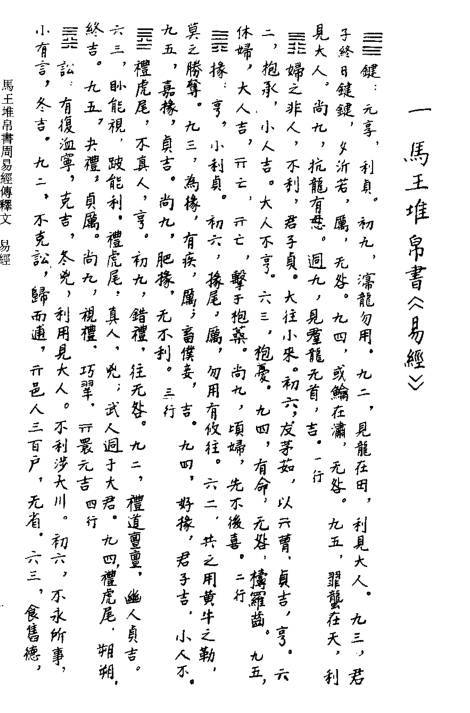 一 馬王堆帛書《易經》
䷀鍵：元享，利貞。初九，㵤龍勿用。九二，見龍在田，利見大人。九三，君
子終日鍵鍵，夕沂若，厲，无咎。九四，或鱅在潚，无咎。九五，翟龍在天，利
見大人。尚九，抗龍有悔。迵九，見羣龍无首，吉。一行
䷋婦之非人，不利，君子貞。大往小來。初六，犮茅茹，以亓曹，貞吉，亨。六
二，抱承，小人吉。大人不亨。六三，抱憂。九四，有命，无咎，檮羅齒。九五，
休婦，大人吉，亓亡，亓亡，擊于抱桑。尚九，頃婦，先不後喜。二行
䷠掾：亨，小利貞。初六，掾尾，厲，勿用有攸往。六二，共之用黄牛之勒，
莫之勝奪。九三，為掾，有疾，厲；畜僕妾，吉。九四，好掾，君子吉，小人不。
九五，嘉掾，貞吉。尚九，肥掾，无不利。三行
䷉禮虎尾，不真人，亨。初九，錯禮，往无咎。九二，禮道亶亶，幽人貞吉。
六三，眇能視，跛能利。禮虎尾，真人，兇；武人迵于大君。九四，禮虎尾，朔朔，
終吉。九五，夬禮，貞厲。尚九，視禮，巧翠，亓睘元吉 四行
䷅訟：有復洫寧，克吉，冬兇，利用見大人。不利涉大川。初六，不永所事，
小有言，冬吉。九二，不克訟，歸而逋，亓邑人三百户，无省。六三，食舊德，
馬王堆帛書周易經傳釋文 易經